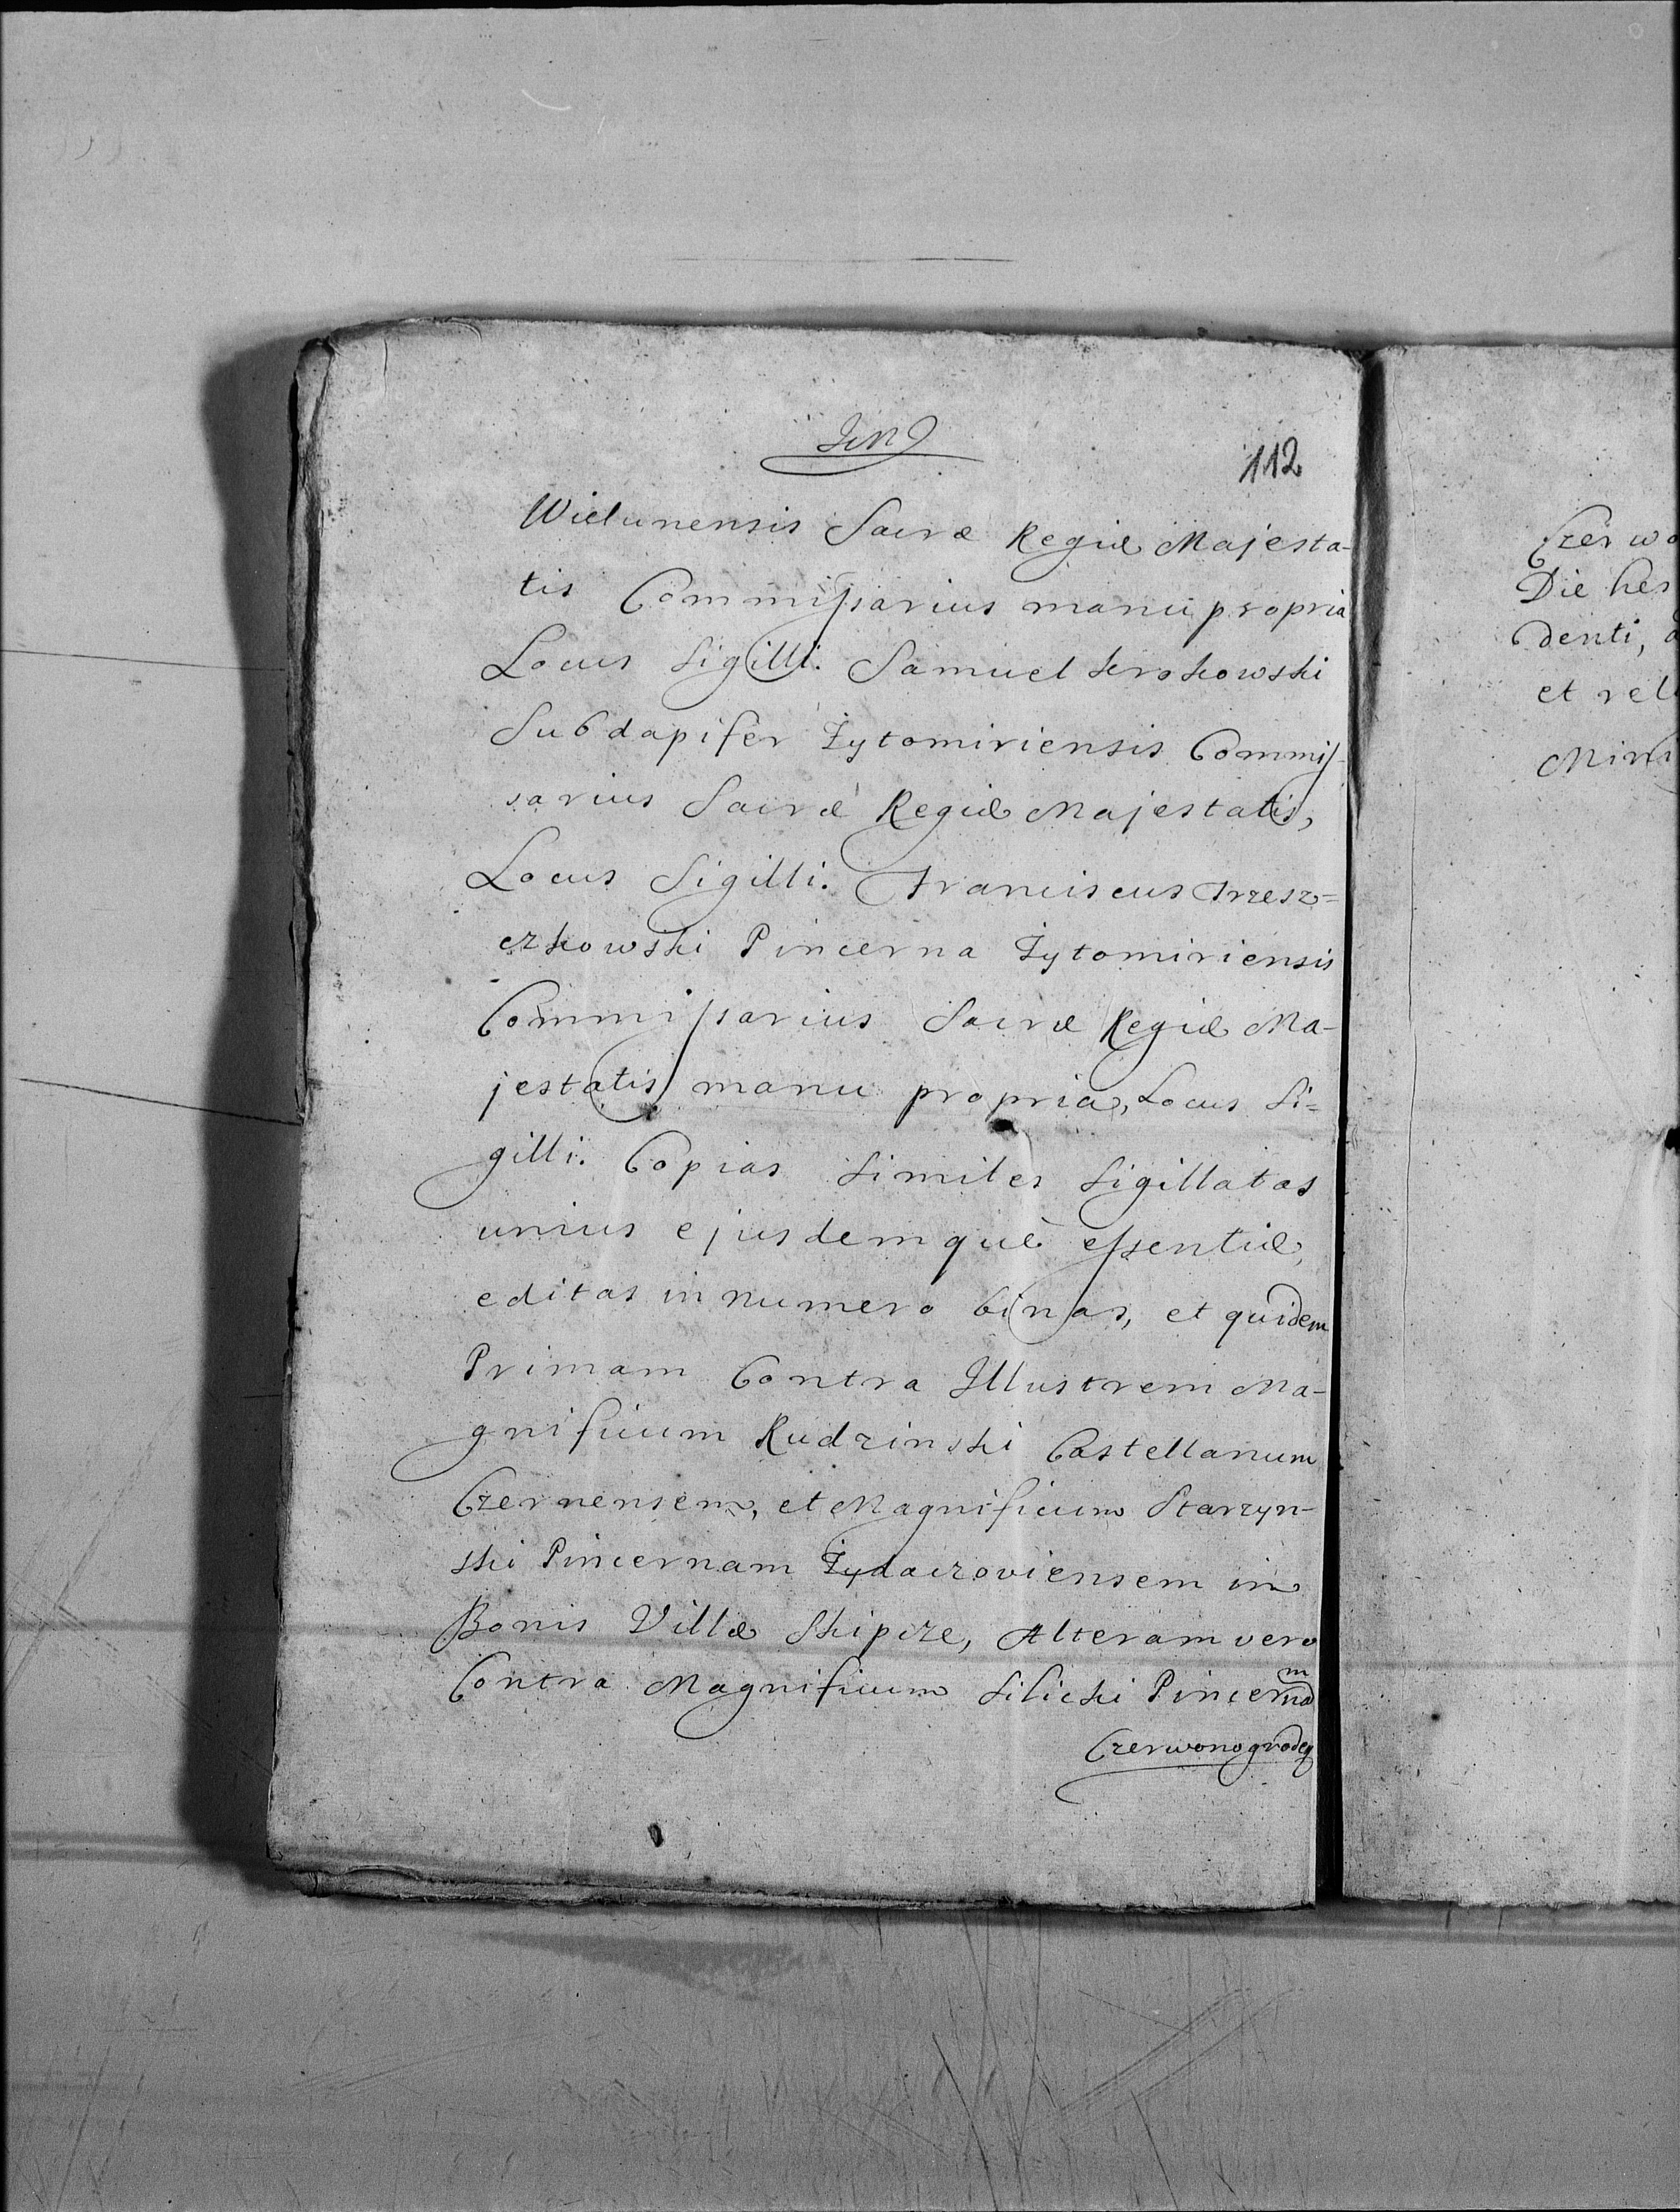 112
Wielunensis Sacræ Regiæ Majesta-
tis Commissarius manu propria
Locus Sigilli. Samuel Krokowski
Subdapifer Żytomiriensis Commis-
sarius Sacræ Regiæ Majestatis,
Locus Sigilli. Franciscus Trzesz=
czkowski Pincerna Żytomiriensis
Commissarius Sacræ Regiæ Ma-
jestatis manu propria, Locus Si=
gilli. Copias Similes Sigillatas
unius ejusdemquè essentiæ,
editas in numero binas, et quidem
Primam Contra Illustrem Ma-
gnificum Rudzinski Castellanum
Czernensem, et Magnificum Starzyn-
ski Pincernam Żydaczoviensem in
Bonis Villæ Skipcze, Alteram vero
Contra Magnificum Silicki Pincernam
Czerwonogrodeñ
Czerwo
Die hes
denti,
et rel
Mini